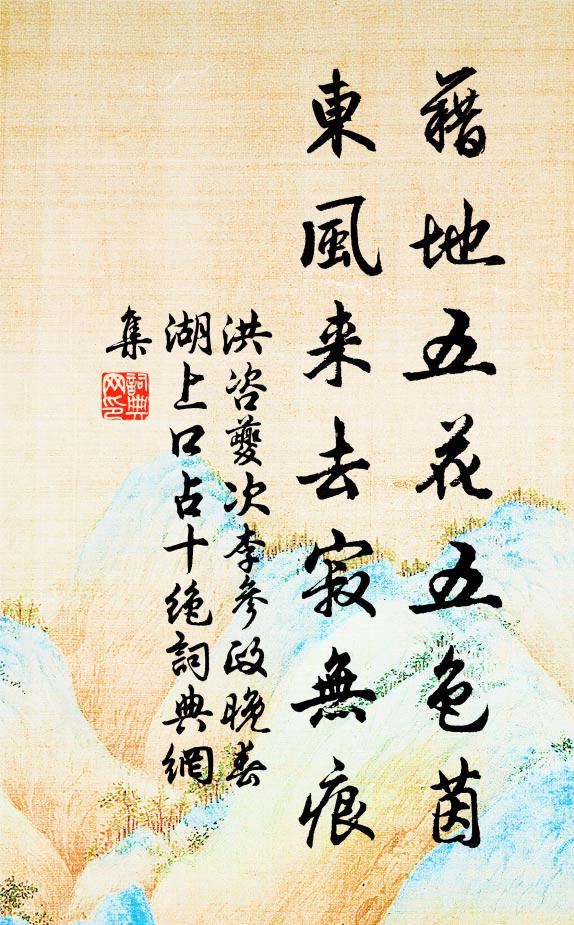 藉地五花五色茵
東風来去寂無痕
洪咨夔次李參政晚春
湖上口占十絶詞典網
集
詞典網印